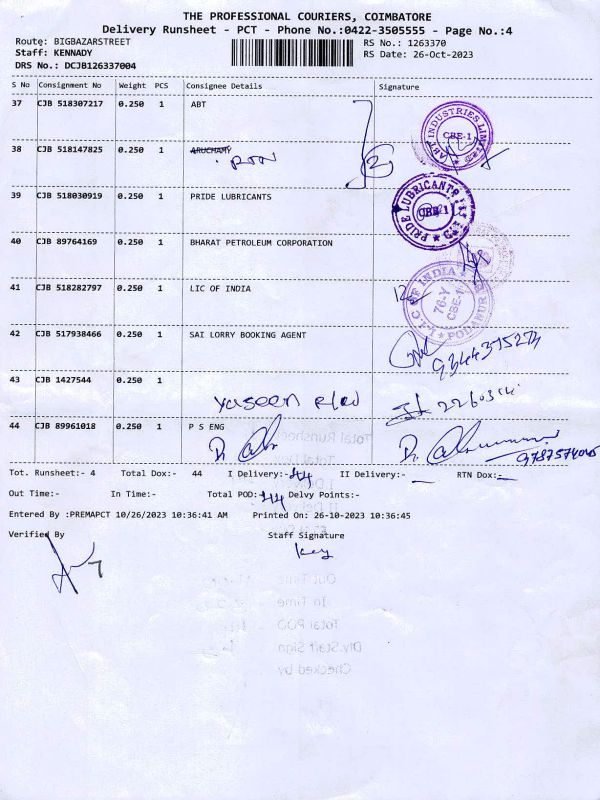 THE PROFESSIONAL COURIERS, COIMBATORE
Delivery Runsheet - PCT - Phone No.:0422-3505555 - Page No.:4
Route: BIGBAZARSTREET RS No.: 1263370
Staff: KENNADY RS Date: 26-Oct-2023
DRS No.: DCJB126337004
S No Consignment No Weight PCS Consignee Details Signature
37 CJB 518307217 0.250 1 ABT
ABT INDUSTRIES LIMITED CBE-1
38 CJB 518147825 0.250 1 ARUCHAMY
RTN
39 CJB 518030919 0.250 1 PRIDE LUBRICANTS
PRIDE LUBRICANTS CBE-1
40 CJB 89764169 0.250 1 BHARAT PETROLEUM CORPORATION
41 CJB 518282797 0.250 1 LIC OF INDIA
L.I.C OF INDIA 76-Y CBE-1 PODANUR
42 CJB 517938466 0.250 1 SAI LORRY BOOKING AGENT
43 CJB 1427544 0.250 1
Yaseen
44 CJB 89961018 0.250 1 P S ENG
Tot. Runsheet:- 4 Total Dox:- 44 I Delivery:- 44 II Delivery:- — RTN Dox:- —
Out Time:- In Time:- Total POD: 44 Delvy Points:-
Entered By :PREMAPCT 10/26/2023 10:36:41 AM Printed On: 26-10-2023 10:36:45
Verified By Staff Signature